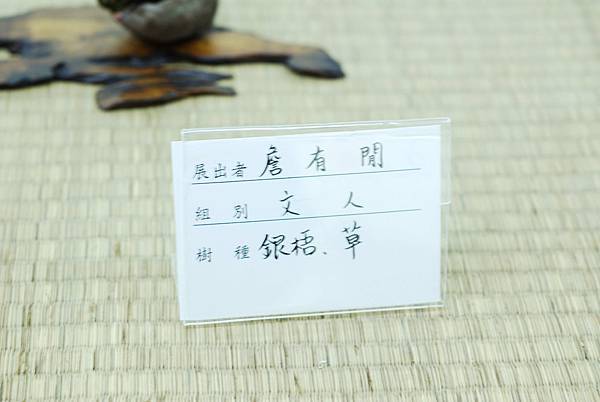 展出者 詹有閒
組別 文人
樹種 銀梧、草